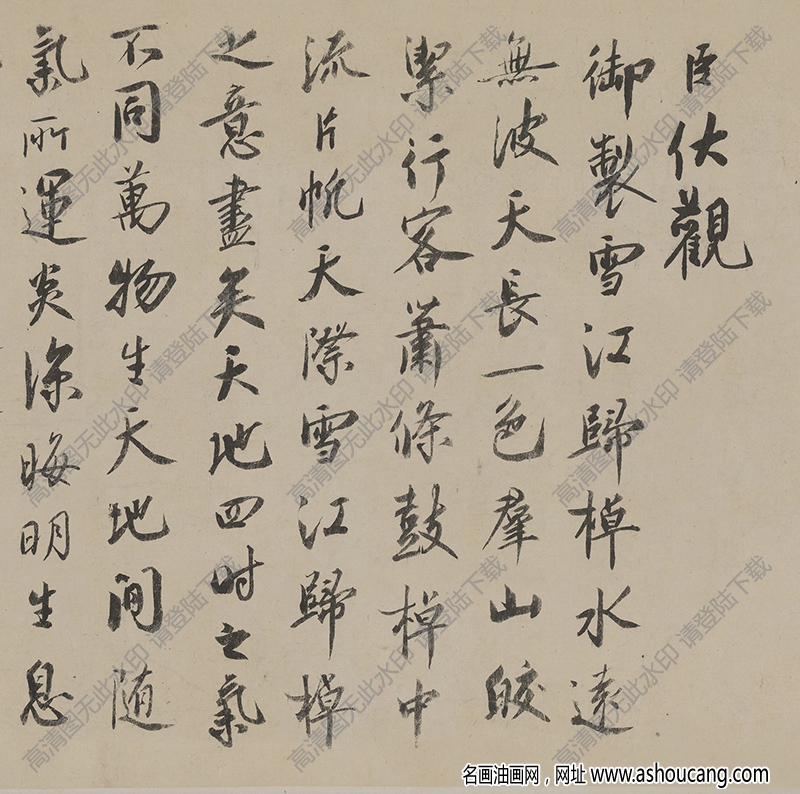 臣伏觀
御製雪江歸棹水遠
無波天長一色羣山皎
潔行客蕭條鼓棹中
流片帆天際雪江歸棹
之意盡矣天地四時之氣
不同萬物生天地間随
氣所運炎涼晦明生息
高清图无此水印 请登陆下载
名画油画网，网址 www.ashoucang.com